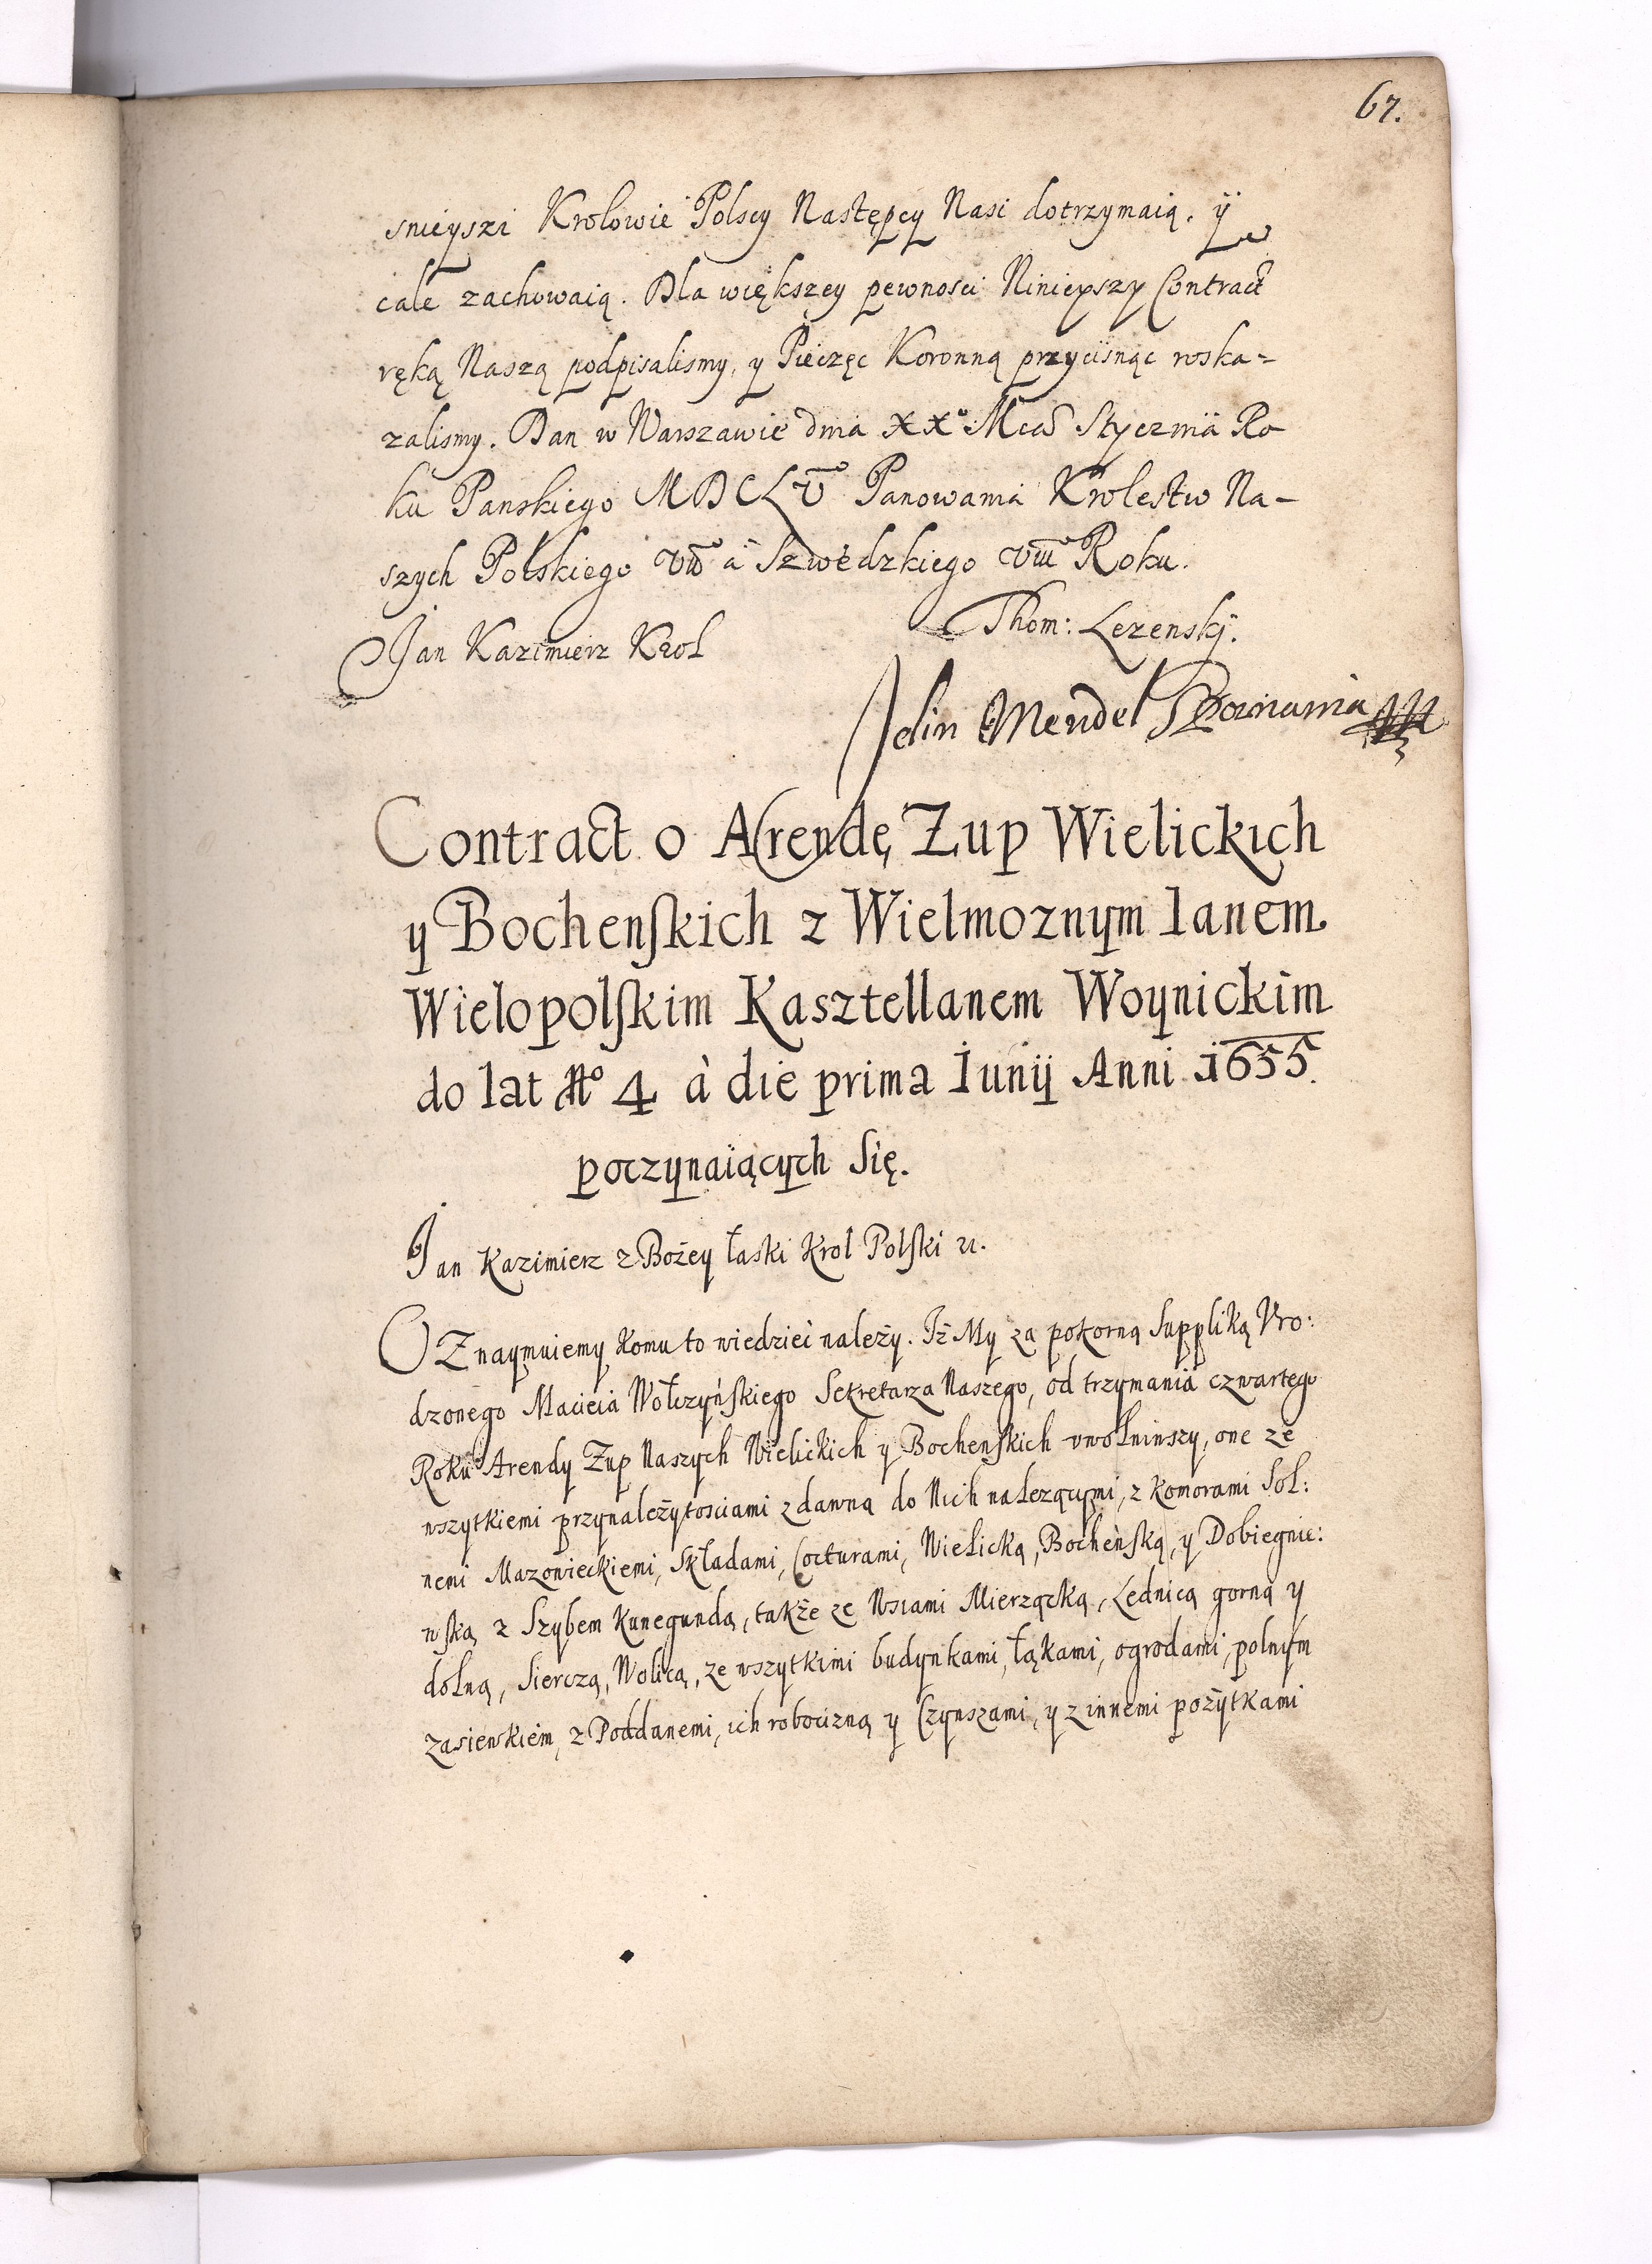 67.
snieyszi Krolowie Polscy Następcy Nasi dotrzymaią. ÿ w
cale zachowaią. Dla większey pewnosci Ninieyszy Contract
ręką Naszą podpisalismy, y Pieczęc Koronną przycisnąc roska-
zalismy. Dan w Warszawie dnia XXo Mca Stycznia Ro
ku Panskiego MDCLV Panowania Krolestw Na-
szych Polskiego VII a Szwedzkiego VIII Roku.
Jan Kazimierz Krol
Thom: Lezenskj.
Mendel
Contract o Arendę Zup Wielickich
y Bochenskich z Wielmoznym Ianem
Wielopolskim Kasztellanem Woynickim
do lat No 4 à die prima Iunij Anni 1655.
poczynaiących Się.
Jan Kazimierz z Bożey łaski Krol Polski zc.
OZnaymuiemy komu to wiedziec należy. Iż My za pokorną Suppliką Vro:
dzonego Macieia Wołczyńskiego Sekretarza Naszego, od trzymania czwartego
Roku Arendy Zup Naszych Wielickich y Bochenskich vwolniwszy, one ze
wszytkiemi przynależytosciami z dawna do Nich nalezącymi, z komorami Sol:
nemi Mazowieckiemi, Składami, Cocturami, Wielicką, Bocheńską, y Dobiegnie:
wską z Szybem Kunegundą, także ze Wsiami Mierzączką, Lednicą gorną y
dolną, Sierczą, Wolicą, ze wszytkimi budynkami, łąkami, ogrodami, polnym
zasiewkiem, z Poddanemi, ich robocizną y Czynszami, y z innemi pożytkami